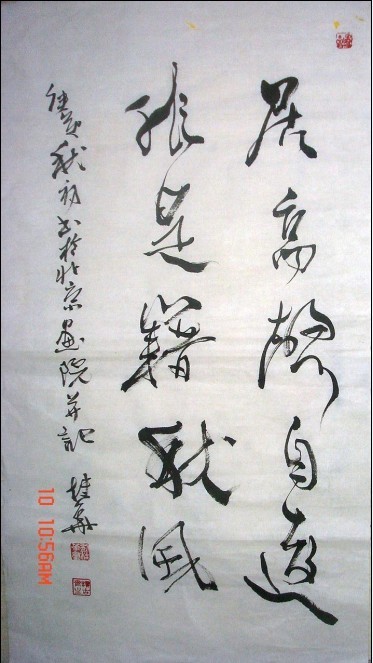 居高聲自遠
非是籍秋風
秋初書於北京畫院并記
10 10:56AM